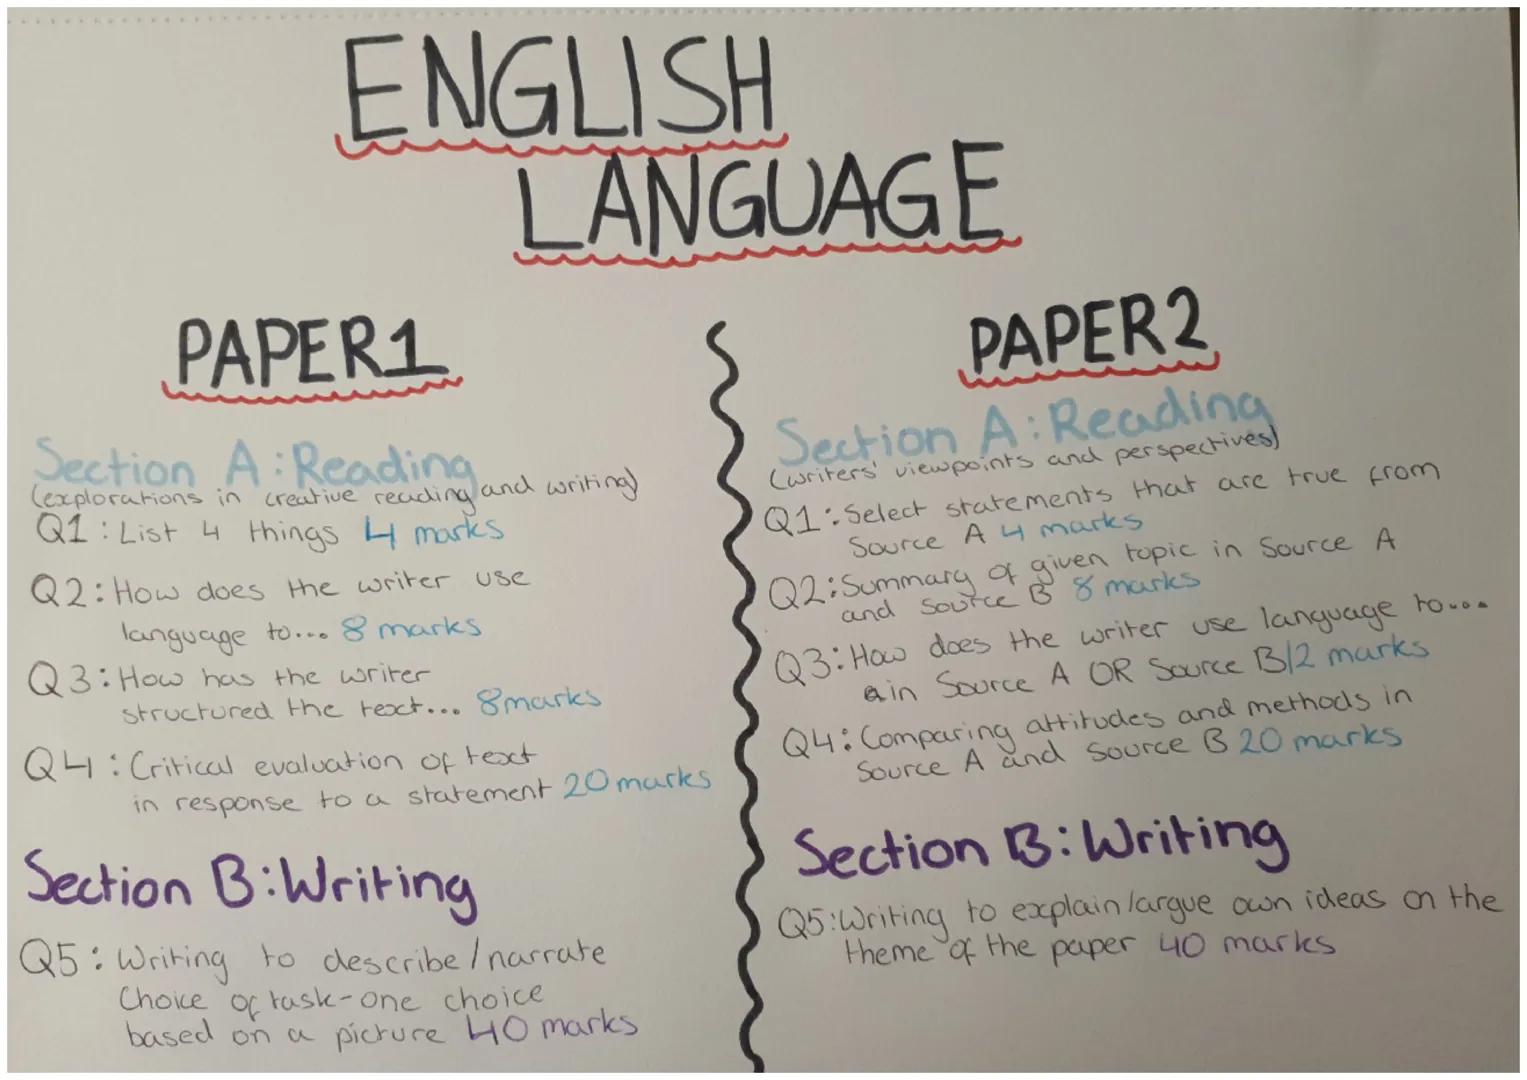 ENGLISH
LANGUAGE
PAPER1
Section A:Reading
(explorations in creative reading and writing)
Q1: List 4 things 4 marks
Q2: How does the writer use
language to... 8 marks
Q3: How has the writer
structured the text... 8marks
Q4: Critical evaluation of text
in response to a statement 20marks
Section B:Writing
Q5: Writing to describe/narrate
Choice of task-one choice
based on a picture 40 marks
PAPER2
Section A:Reading
(writers' viewpoints and perspectives)
Q1: Select statements that are true from
Source A 4 marks
Q2:Summary of given topic in Source A
and Source B 8 marks
Q3: How does the writer use language to...
in Source A OR Source B 12 marks
Q4: Comparing attitudes and methods in
Source A and Source B 20 marks
Section B:Writing
Q5:Writing to explain/argue own ideas on the
theme of the paper 40 marks